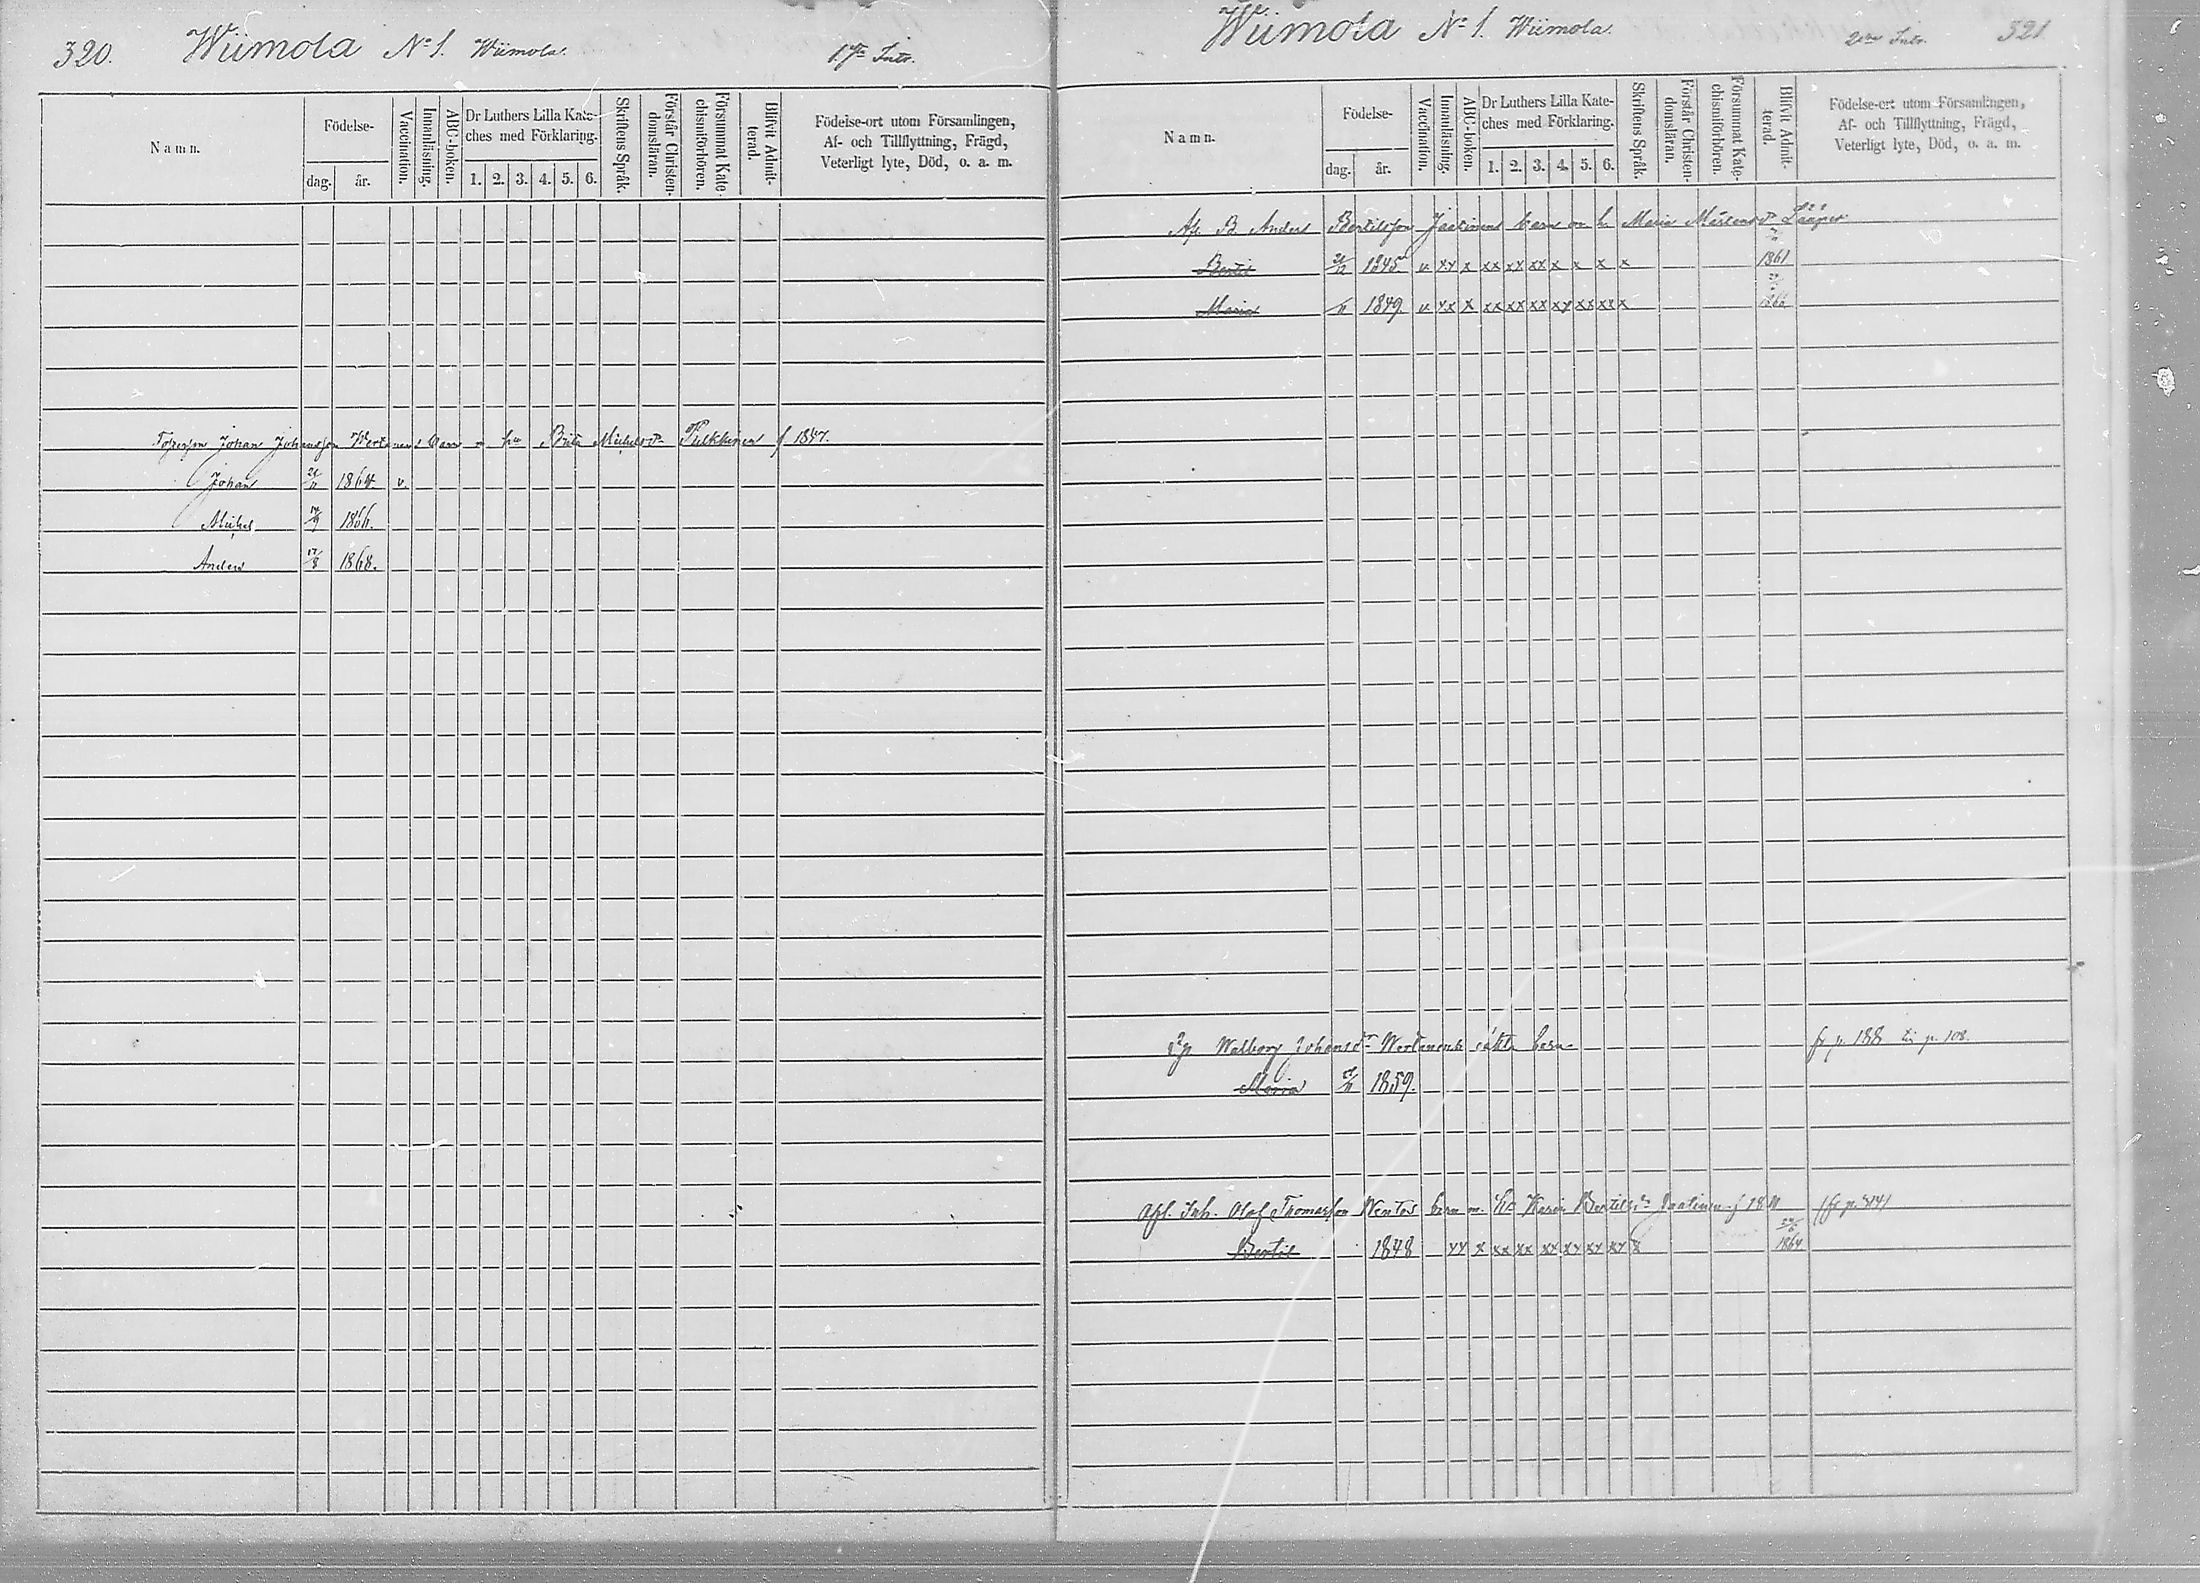 320. Wiimola No 1. Wiimola. 1sta Intr.
Namn.
Födelse-
dag. år.
Vaccination.
Innanläsning.
ABC-boken.
Dr Luthers Lilla Kate-
ches med Förklaring.
1. 2. 3. 4. 5. 6.
Skriftens Språk.
Förstår Christen-
domsläran.
Försummat Kate-
chismiförhören.
Blifvit Admit-
terad.
Födelse-ort utom Församlingen,
Af- och Tillflyttning, Frägd,
Veterligt lyte, Död, o. a. m.
Johan Johansson barn m hu Brita Michelsdr Pulkkinen f 1847.
Johan 1864 v.
Michel 19/9 1866.
Anders 17/8 1868.
Wiimola No 1. Wiimola. 2dra Intr. 321
Namn.
Födelse-
dag. år.
Vaccination.
Innanläsning.
ABC-boken.
Dr Luthers Lilla Kate-
ches med Förklaring.
1. 2. 3. 4. 5. 6.
Skriftens Språk.
Förstår Christen-
domsläran.
Försummat Kate-
chismiförhören.
Blifvit Admit-
terad.
Födelse-ort utom Församlingen,
Af- och Tillflyttning, Frägd,
Veterligt lyte, Död, o. a. m.
Afl. B. Anders Bertilsson Jaatinens barn m h. Maria Mårtensdr Lääper
Bertil 21/12 1845 v xx x xx xx xx x x x x 1861
Maria 1849 v xx x xx xx xx xx xx xx x
Walborg Johansdr Wertanens oäkta barn fr p. 188 till p. 108.
Maria 1859.
Afl. Inh. Olof Thomasson Wentos barn m. Hu Maria Bertilsdr Jaatinen (fr p. 414)
Bertil 1848 xx x xx xx xx xx xx xx x 1864